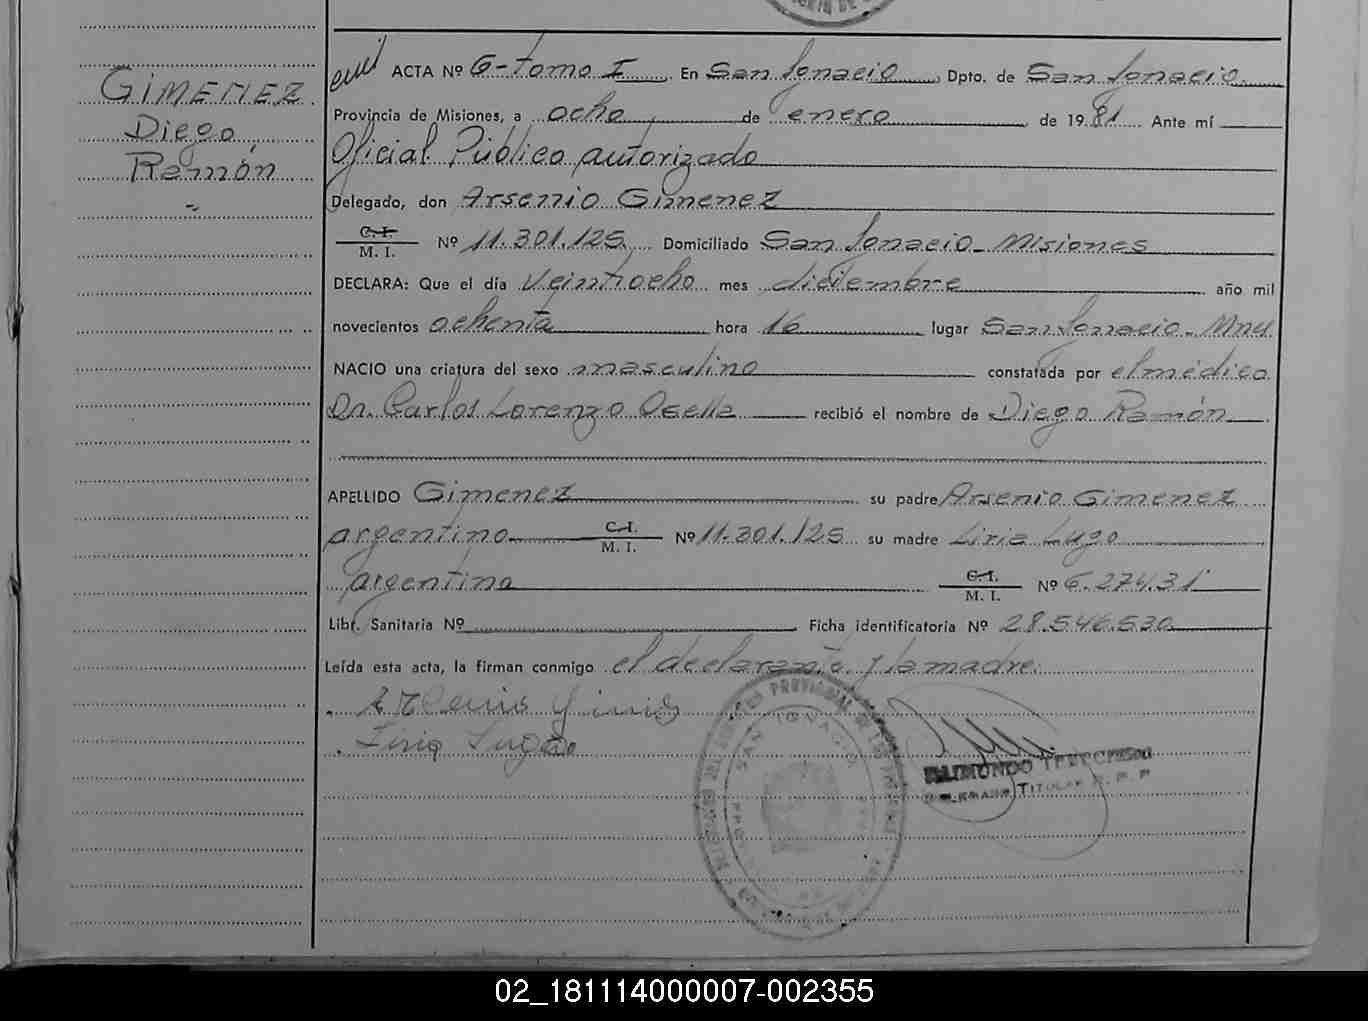 GIMENEZ
Diego
Ramón
ACTA Nº 6-Tomo I. En San Ignacio, Dpto. de San Ignacio
Provincia de Misiones, a ocho de enero de 1981 Ante mí
Oficial Público autorizado
Delegado, don Arsenio Gimenez
C. I.
M. I. Nº 11.301.125 Domiciliado San Ignacio - Misiones
DECLARA: Que el día veintiocho mes diciembre año mil
novecientos ochenta hora 16 lugar San Ignacio - Mnes
NACIO una criatura del sexo masculino constatada por el médico
Dr. Carlos Lorenzo recibió el nombre de Diego Ramón
APELLIDO Gimenez su padre Arsenio Gimenez
argentino C.I. M. I. Nº 11.301.125 su madre Liria Lugo
argentina C.I. M. I. Nº 6.274.31
Libr. Sanitaria Nº Ficha identificatoria Nº 28.546.530
Leída esta acta, la firman conmigo el declarante y la madre.
Liria Lugo
SAN IGNACIO
RAIMUNDO
TITULAR
02_181114000007-002355